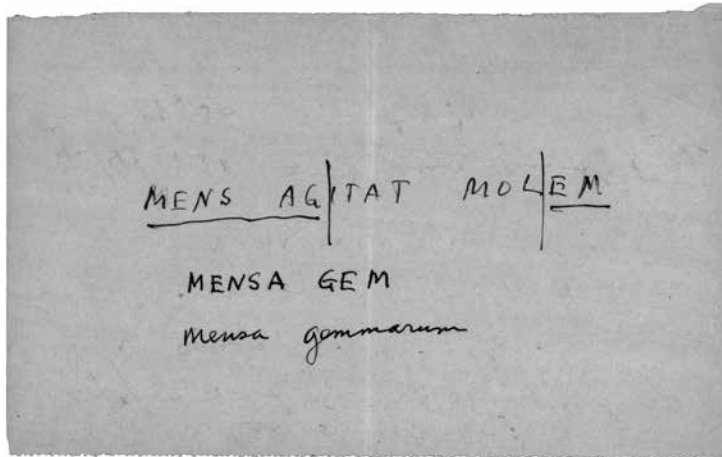 MENS AG|ITAT MOL|EM
MENSA GEM
mensa gemmarum